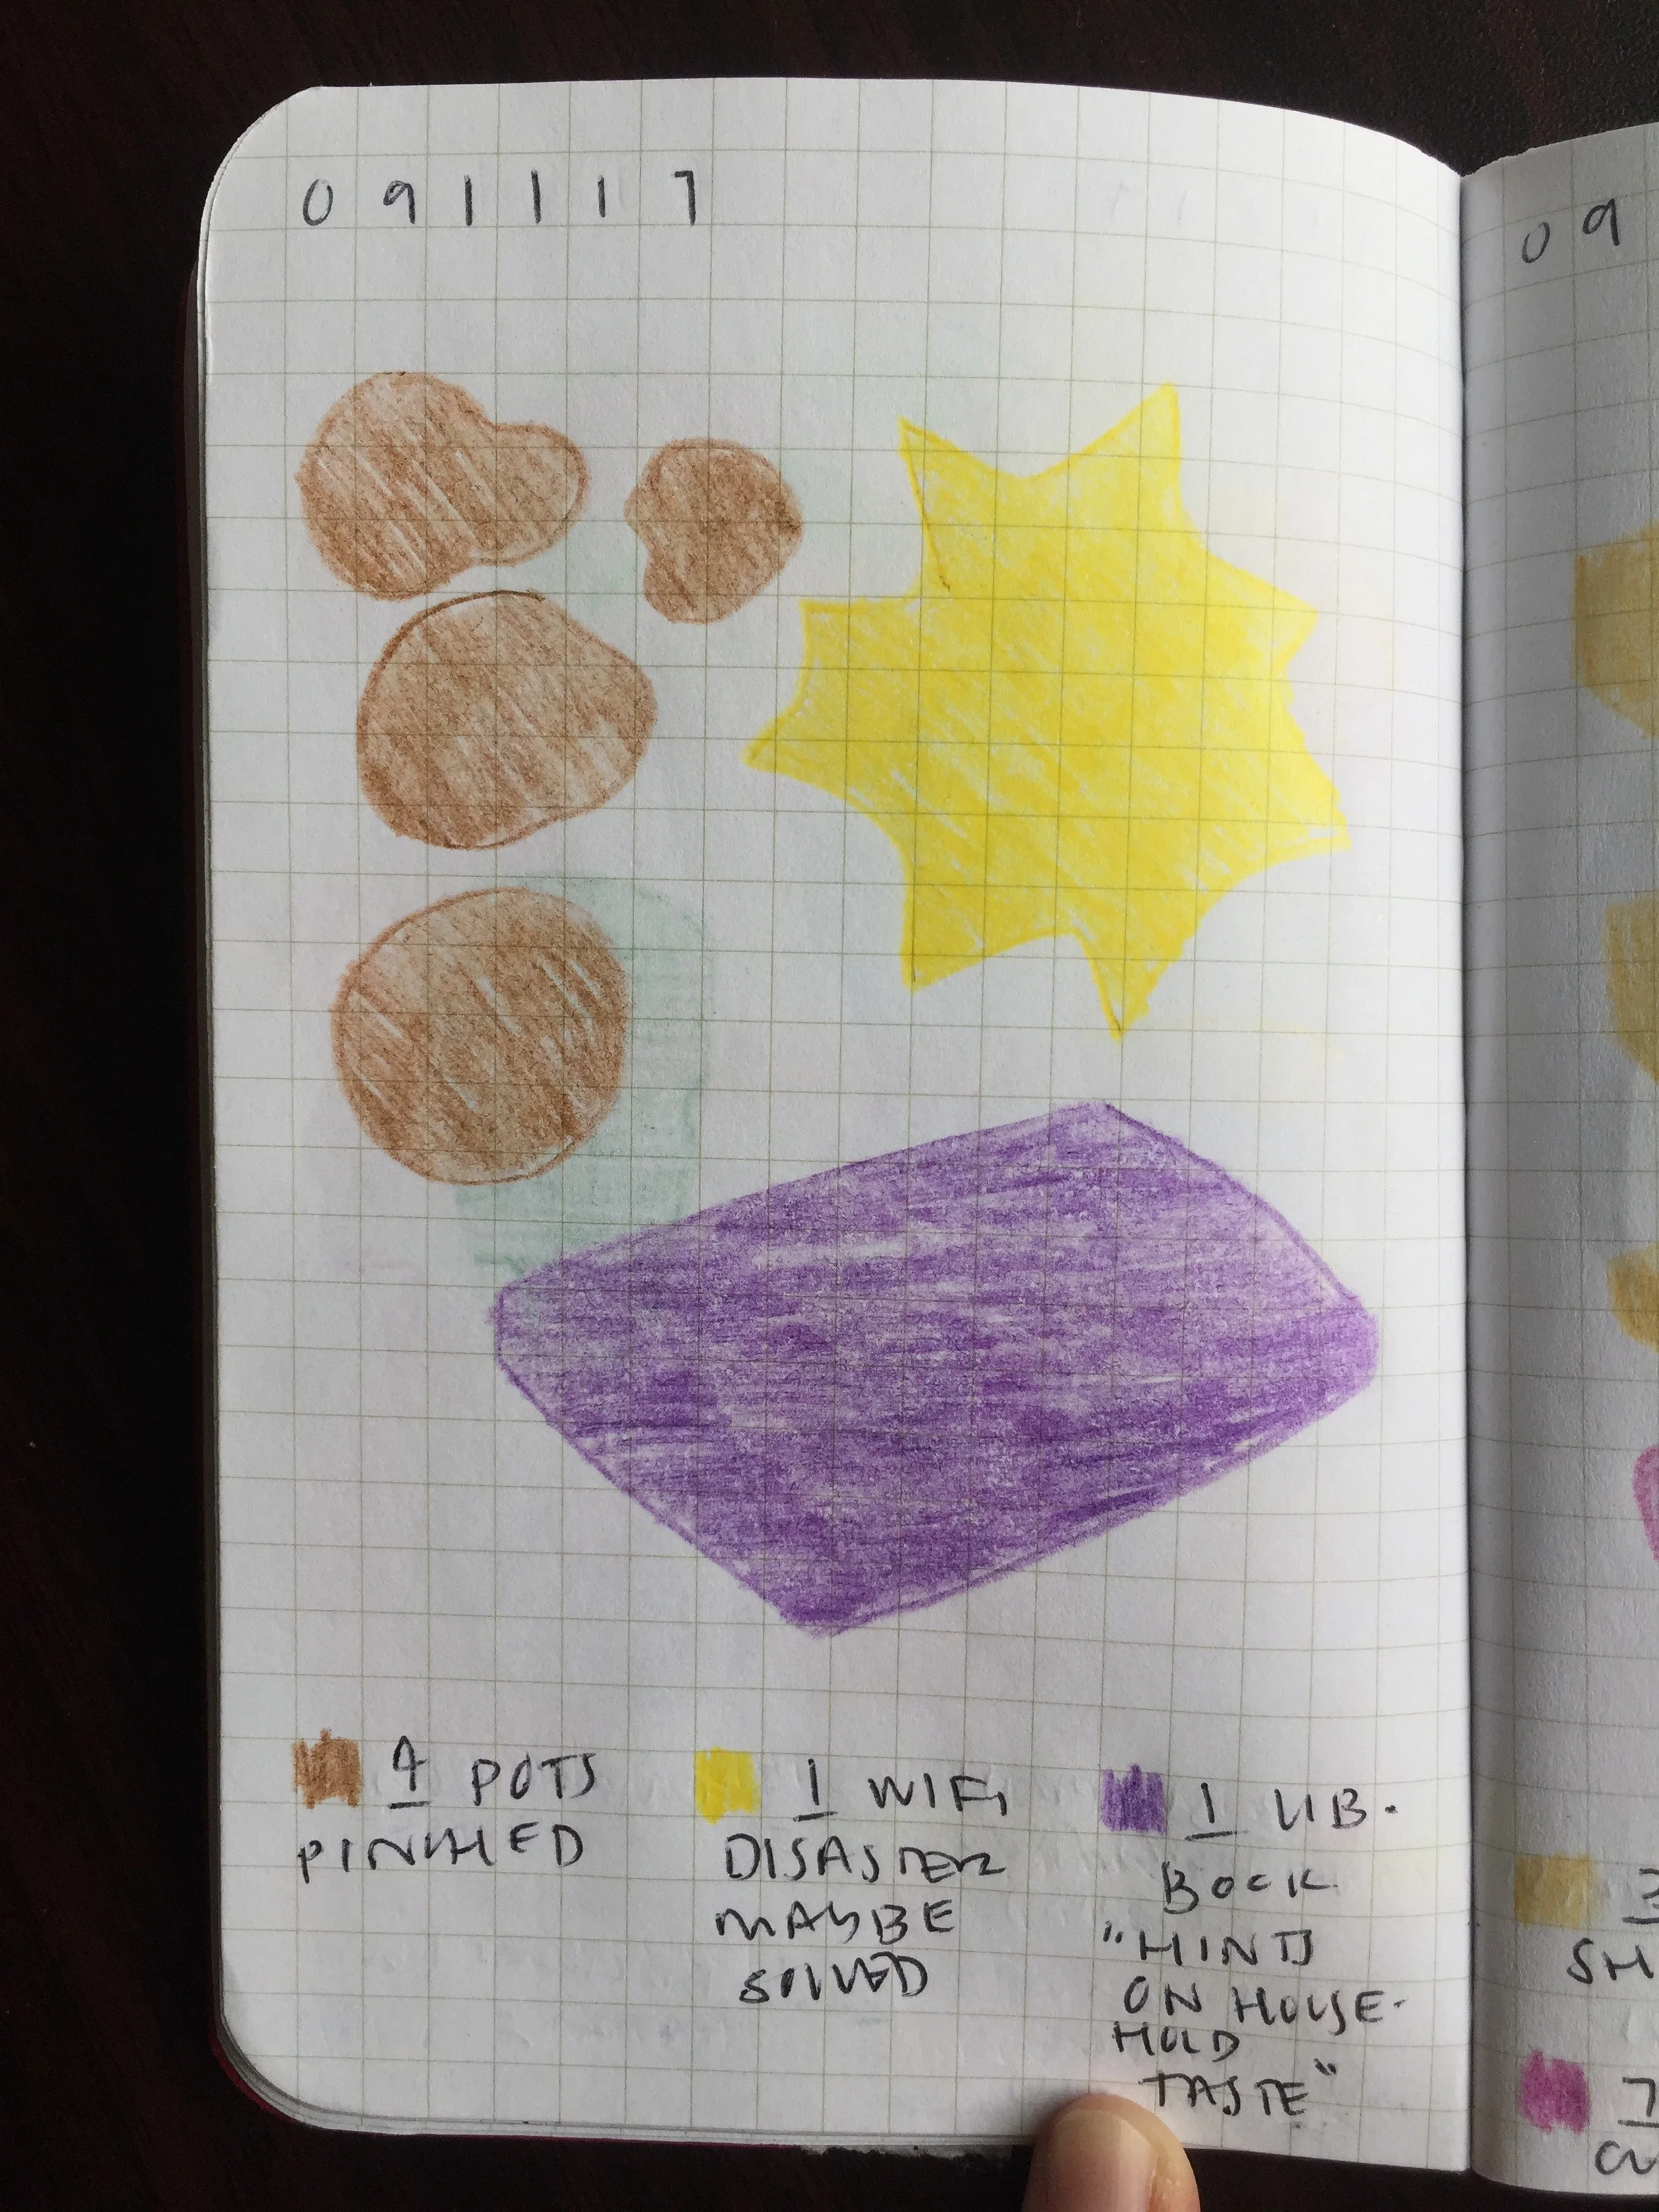 091117
4 POTS
PINCHED
1 WIFI
DISASTER
MAYBE
SOLVED
1 LIB.
BOOK
"HINTS
ON HOUSE-
HOLD
TASTE"
09
3
SH
7